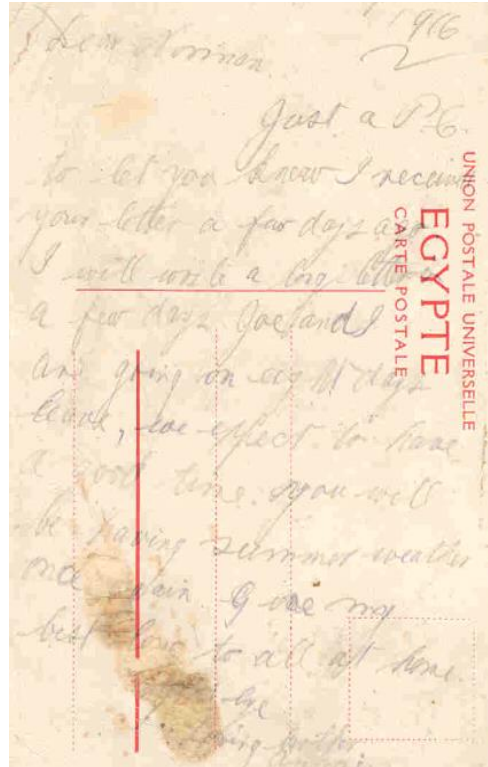 1916
Dear Norman.
Just a P.C.
to let you know I receive
your letter a few days ago
I will write a long letter
a few days Joe and I
are going on eight days
leave, we expect to have
a good time. you will
be having summer weather
once again Give my
best love to all at home.
loving brother
UNION POSTALE UNIVERSELLE
EGYPTE
CARTE POSTALE